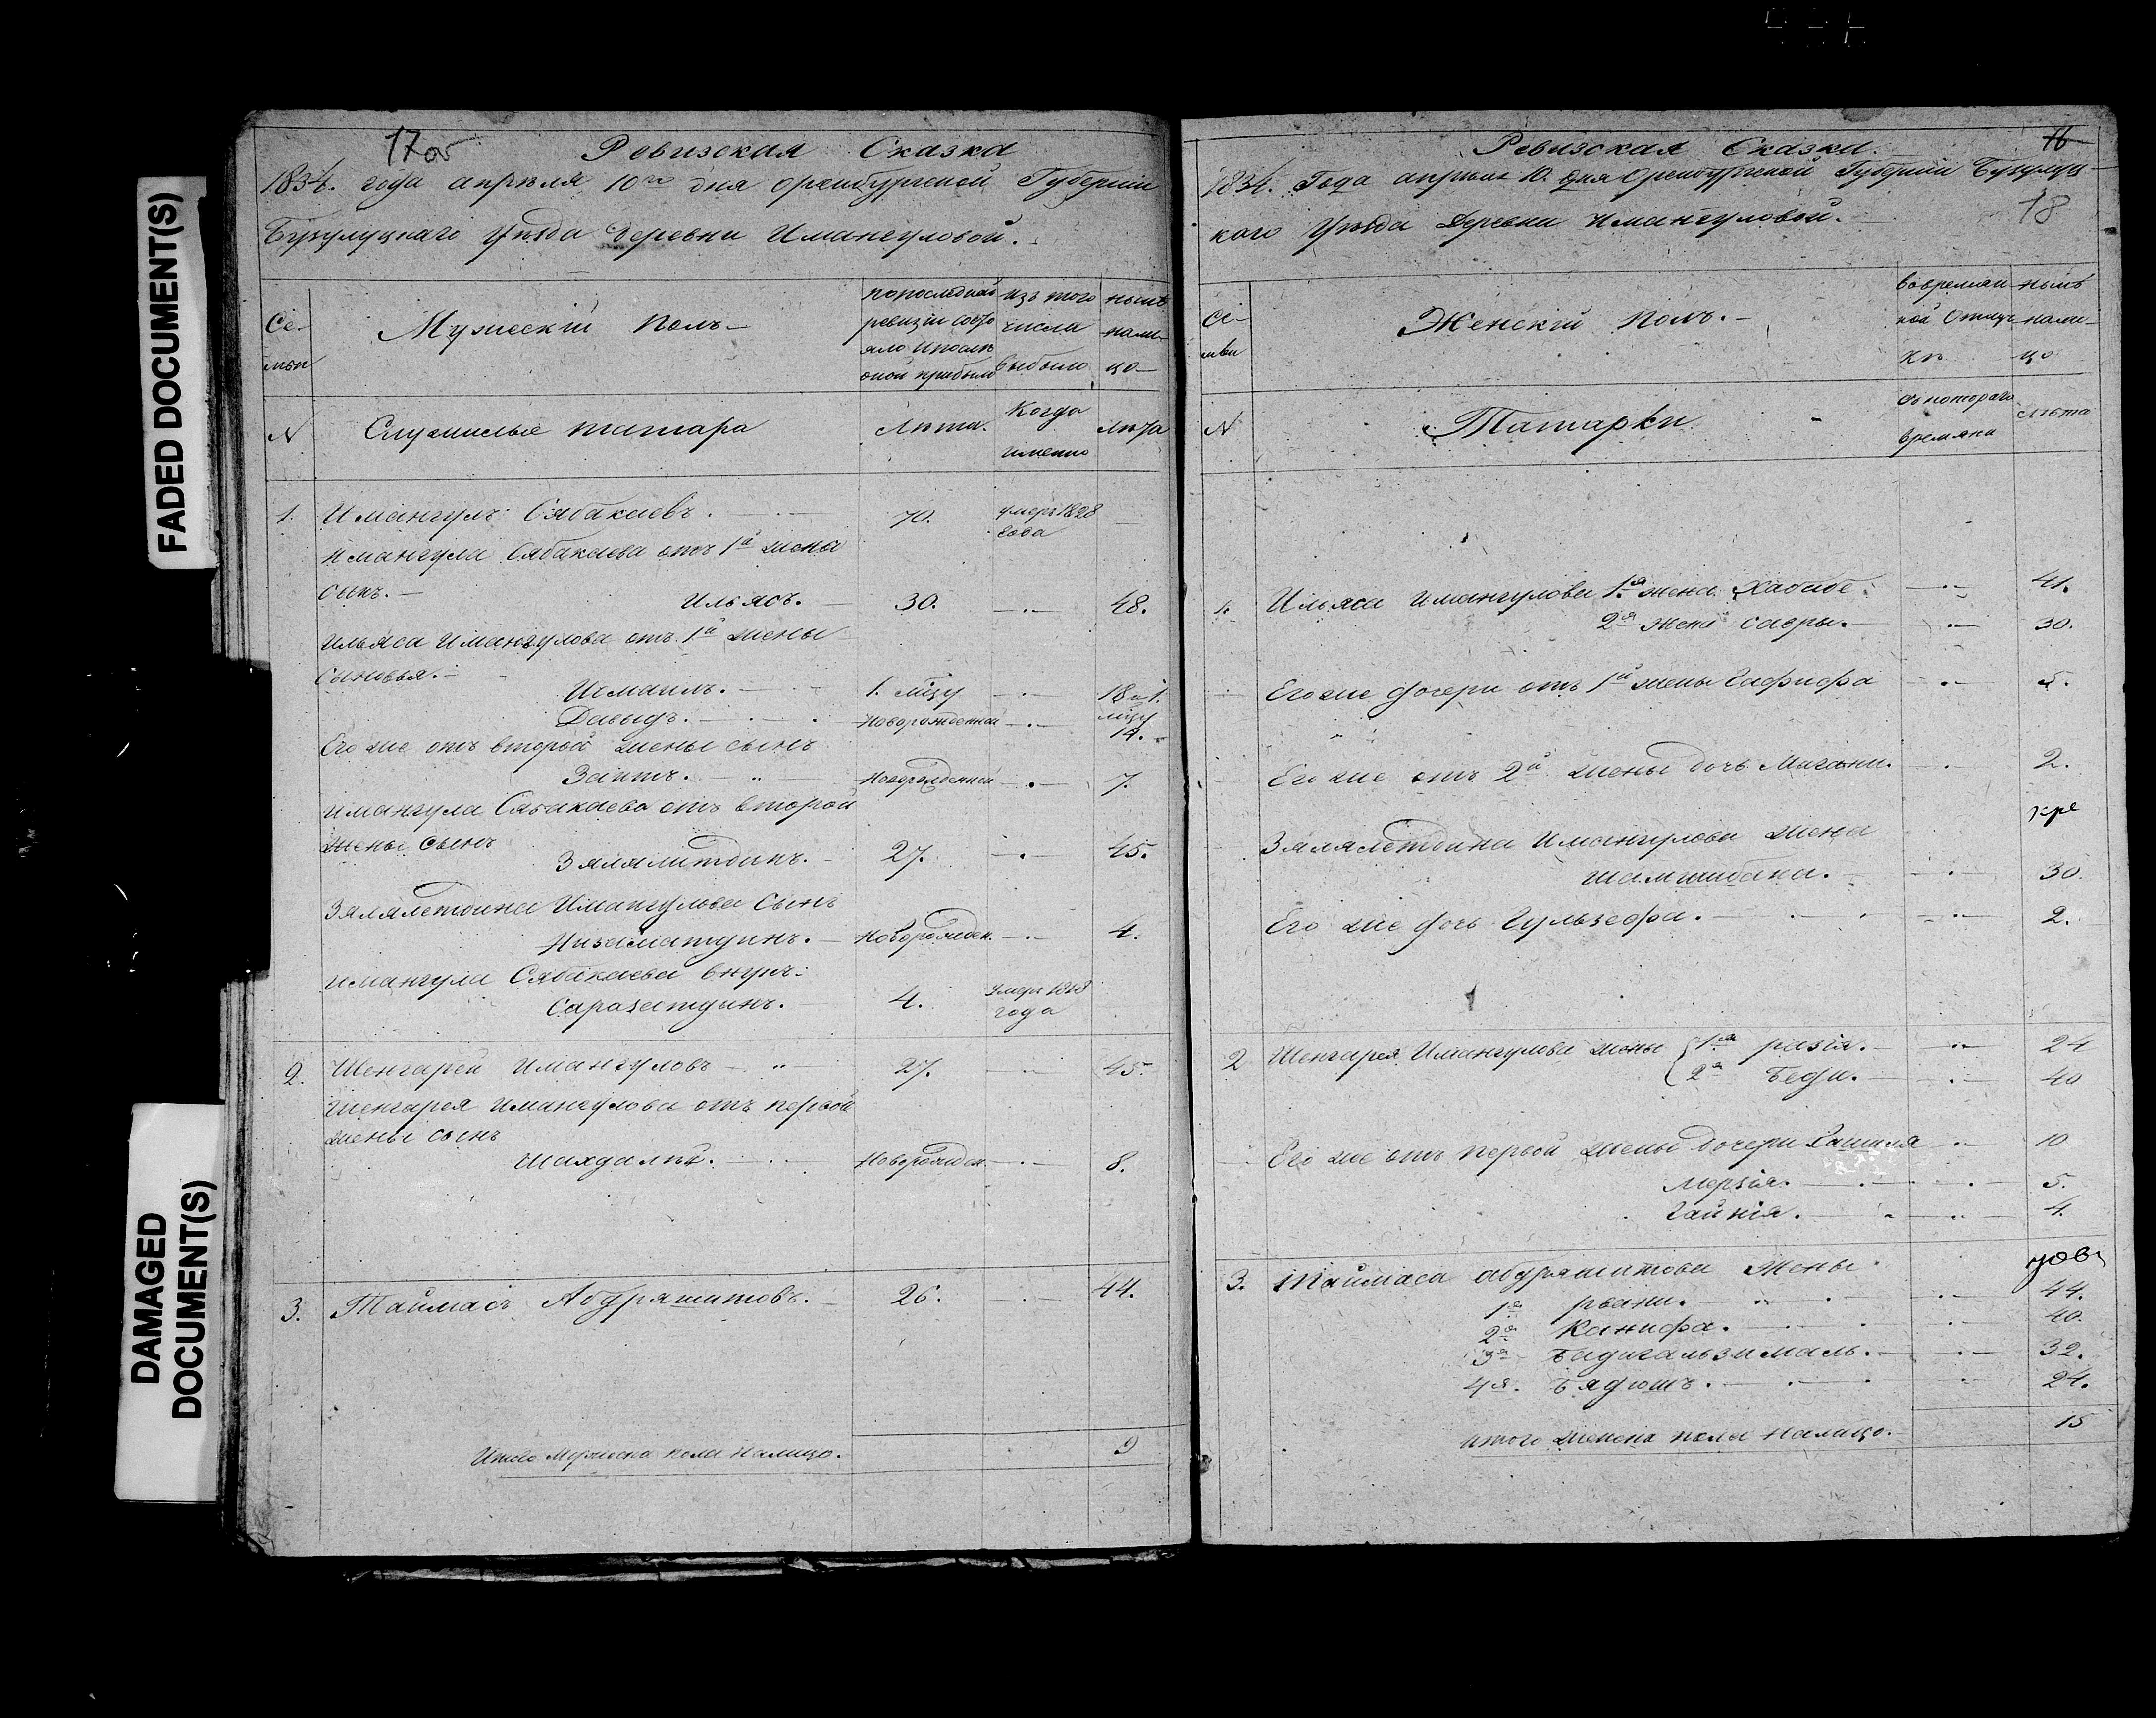 FADED DOCUMENT(S)
DAMAGED
DOCUMENT(S)
17об
Ревизская Сказка
1834. года апреля 10го дня оренбургской Губернии
Бузулуцкаго Уѣзда деревни Имангуловой.
Се-
мьи
Мужескій полъ
по последней
ревизіи состо
яло и после
оной прибыло
изъ того
числа
выбыло
нынѣ
нали-
цо
N
Служилые татара
Лѣта.
Когда
именно
Лѣта
1. Имангулъ Сябакаевъ. 70. умеръ 1828
года
Имангула Сябакаева отъ 1й жены
сынъ.
Ильясъ. 30. 48.
Ильяса Имангулова отъ 1й жены
Сыновья.
Исмаилъ. 1. мцу 18 и 1.
мцу
Давыдъ. Новорожденной 14.
Его же отъ второй жены сынъ
Заитъ. Новорожденной 7.
Имангула Сябакаева отъ второй
жены сынъ
Зялялитдинъ. 27. 45.
Зялялетдина Имангулова Сынъ
Низаматдинъ. Новорожден. 4.
Имангула Сябакаева внукъ.
Саразетдинъ. 4. умеръ 1818
года
2. Шенгарей Имангуловъ 27. 45.
Шенгарея Имангулова отъ первой
жены сынъ
Шахдалей. Новорожден. 8.
3. Таймасъ Абдряшитовъ. 26. 44.
Итого Мужеска пола налицо. 9
Ревизская Сказка. 16
1834. Года апреля 10. дня Оренбургской Губерніи Бузулуц-
кого Уѣзда Деревни Имангуловой. 18
Се-
мьи
Женскій полъ.
во времян
ной отлуч
кѣ
нынѣ
нали-
цо
N
Татарки
съ котораго
времяни
лѣта
1. Ильяса Имангулова 1я жена Хабибе 41.
2я жена Саеры. 30.
Его же дочери отъ 1й жены Гафифа 5.
Его же отъ 2й жены дочь Магани. 2.
Зялялетдина Имангулова жена
Шамшибана. 30.
Его же дочь Гульзефа. 2.
2 Шенгарея Имангулова жены 1я разія. 24
2я Беди. 40
Его же отъ первой жены дочери Хашиля 10
Мерзія. 5.
Гайнія. 4.
3. Таймаса абдряшитова Жены
1я рвани. 44.
2я Канифа. 40.
3я Бадигальзималь. 32.
4я. Бядюшъ. 24.
итого женска пола налицо. 15